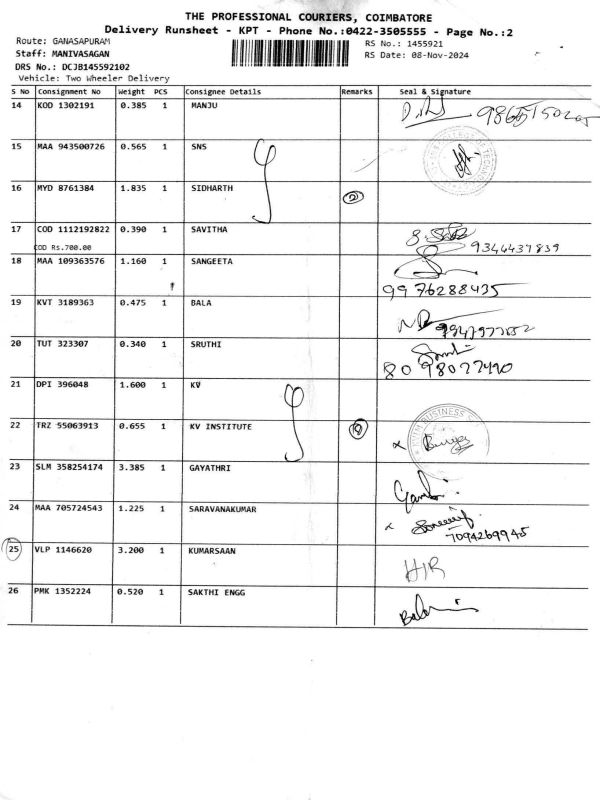 THE PROFESSIONAL COURIERS, COIMBATORE
Delivery Runsheet - KPT - Phone No.:0422-3505555 - Page No.:2
Route: GANASAPURAM
RS No.: 1455921
Staff: MANIVASAGAN
RS Date: 08-Nov-2024
DRS No.: DCJB145592102
Vehicle: Two Wheeler Delivery
S No Consignment No Weight PCS Consignee Details Remarks Seal & Signature
14 KOD 1302191 0.385 1 MANJU
15 MAA 943500726 0.565 1 SNS
16 MYD 8761384 1.835 1 SIDHARTH 2
17 COD 1112192822 0.390 1 SAVITHA 9344437839
COD Rs.700.00
18 MAA 109363576 1.160 1 SANGEETA 9976288435
19 KVT 3189363 0.475 1 BALA
20 TUT 323307 0.340 1 SRUTHI
21 DPI 396048 1.600 1 KV
22 TRZ 55063913 0.655 1 KV INSTITUTE
23 SLM 358254174 3.385 1 GAYATHRI
24 MAA 705724543 1.225 1 SARAVANAKUMAR 7094269945
25 VLP 1146620 3.200 1 KUMARSAAN H/R
26 PMK 1352224 0.520 1 SAKTHI ENGG